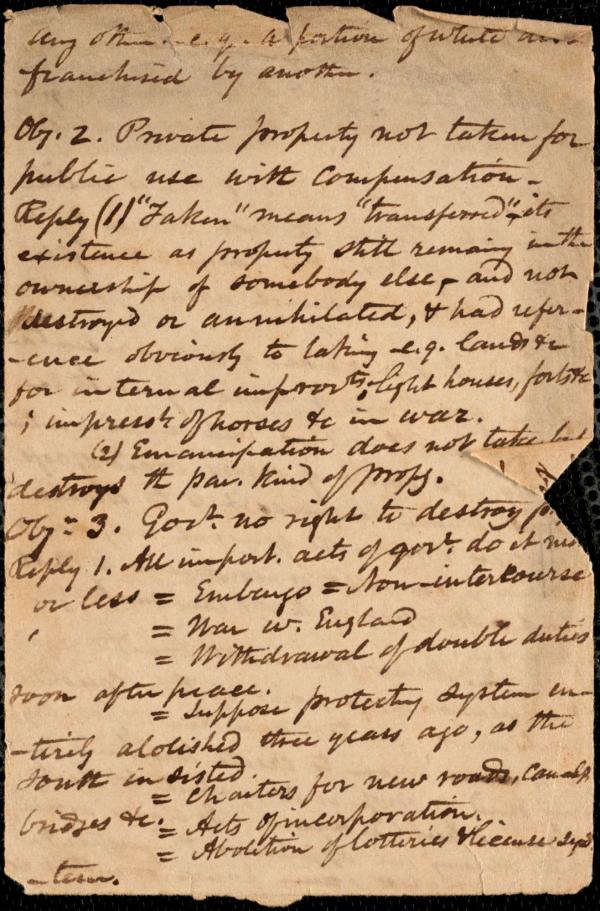 any other. e.g. a portion of white en-
franchised by another.
Obj. 2. Private property not taken for
public use with compensation -
Reply (1) "Taken" means "transferred", its
existence as property still remaing in the
ownership of somebody else, - and not
destroyed or annihilated, & had refer-
-ence obviously to taking e.g. lands &c
for internal improvts, light houses, forts &c
; impresst. of horses &c in war.
(2) Emancipation does not take but
destroys th par. kind of propy.
Obj: 3. Govt. no right to destroy
Reply 1. All import. acts of govt. do it
or less = Embargo = Non-intercourse
= War w. England
= Withdrawal of double duties
soon after peace.
= Suppose protecting system en-
-tirely abolished three years ago, as the
South insisted.
= Charters for new roads, canals,
bridges &c.
= Acts of incorporation.
= Abolition of lotteries & license sys
-tem.